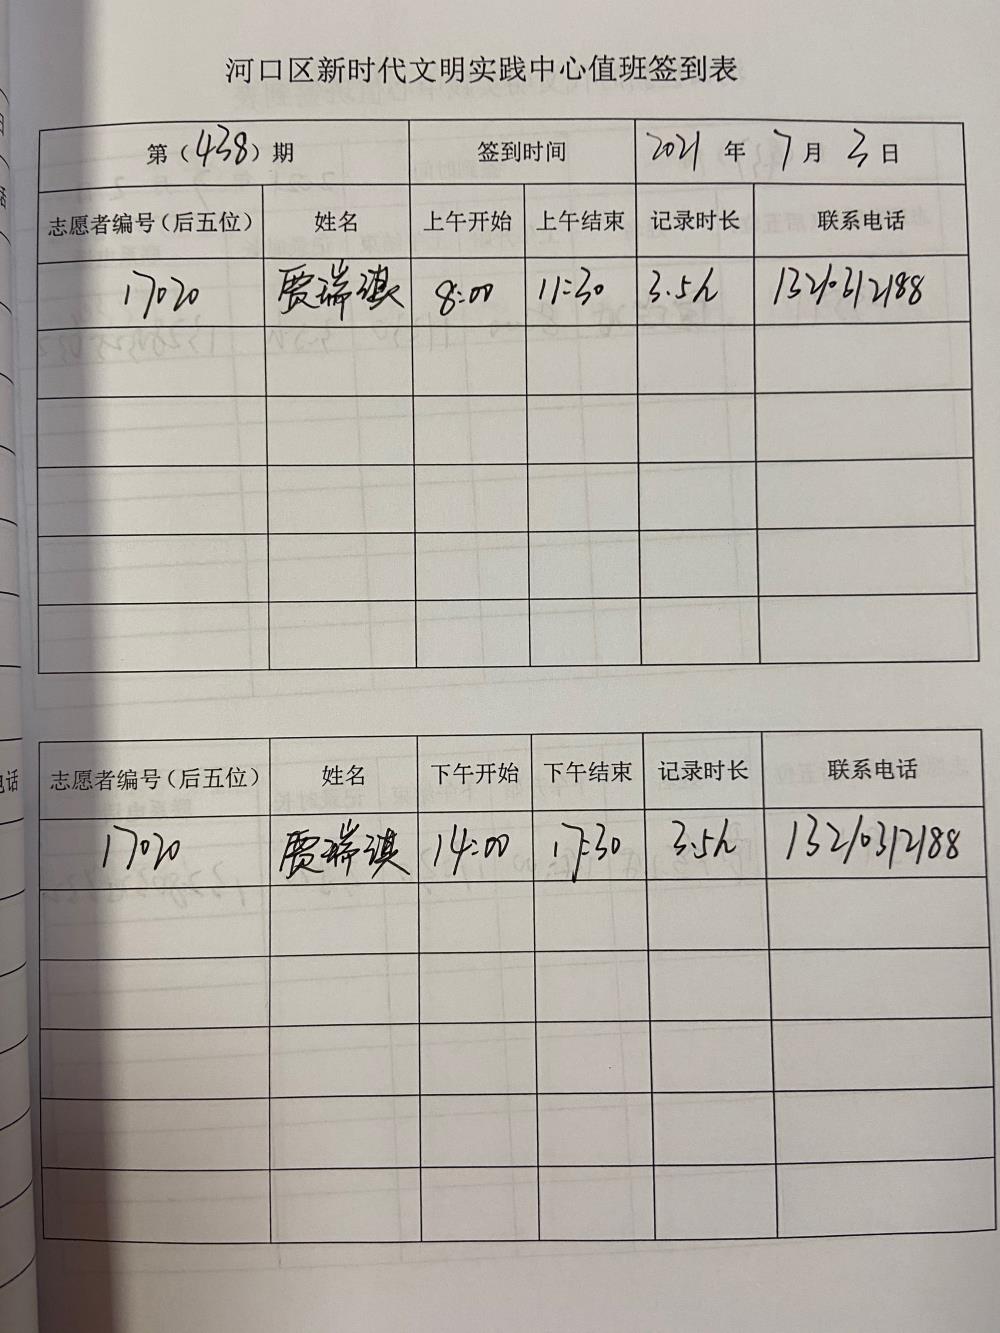 河口区新时代文明实践中心值班签到表
第（438）期 签到时间 2021 年 7 月 3 日
志愿者编号（后五位） 姓名 上午开始 上午结束 记录时长 联系电话
17020 贾瑞淇 8:00 11:30 3.5h 13210312188
志愿者编号（后五位） 姓名 下午开始 下午结束 记录时长 联系电话
17020 贾瑞淇 14:00 17:30 3.5h 13210312188
电话